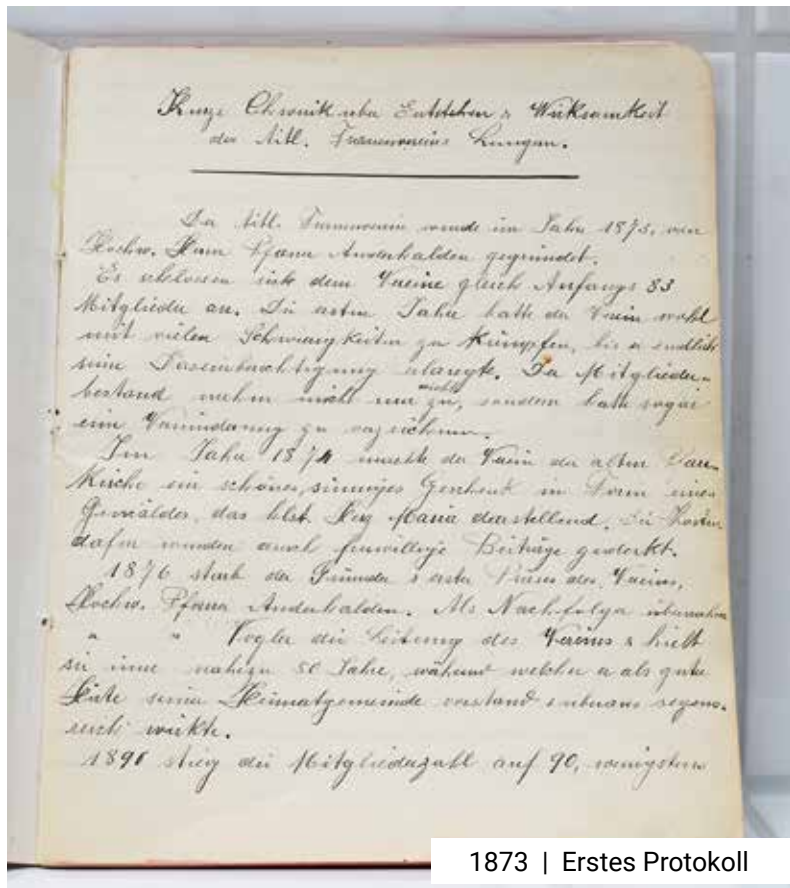 Kurze Chronik über Entstehen & Wirksamkeit
des titl. Frauenvereins Lungern.
Der titl. Frauenverein wurde im Jahre 1873, von
Hochw. Herrn Pfarrer Anderhalden gegründet.
Es schlossen sich dem Vereine gleich Anfangs 83
Mitglieder an. Die ersten Jahre hatte der Verein wohl
mit vielen Schwierigkeiten zu kämpfen, bis er endlich
seine Daseinsberechtigung erlangte. Der Mitglieder-
bestand nahm nicht nur nicht zu, sondern hatte sogar
eine Verminderung zu verzeichnen.
Im Jahre 1874 machte der Verein der alten Pfarr-
kirche ein schönes, sinniges Geschenk in Form eines
Gemäldes, das hlst. Herz Maria darstellend. Die Kosten
dafür wurden durch freiwillige Beiträge gedeckt.
1876 starb der Gründer & erste Präses des Vereins,
Hochw. Pfarrer Anderhalden. Als Nachfolger übernahm
" " Vogler die Leitung des Vereins & hielt
sie inne nahezu 50 Jahre, während welcher er als guter
Hirte seiner Heimatgemeinde vorstand & überaus segens-
reich wirkte.
1890 stieg die Mitgliederzahl auf 90, wenigstens
1873 | Erstes Protokoll